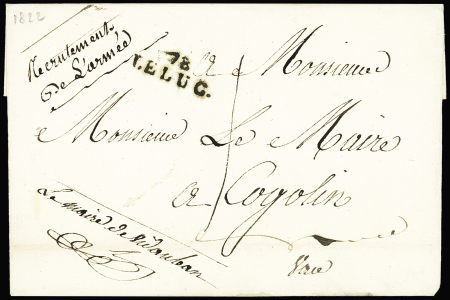 1822
Recrutement
de L'armée
78
LE LUC.
a Monsieur
Monsieur Le Maire
a Cogolin
Le maire de Vidauban
Var